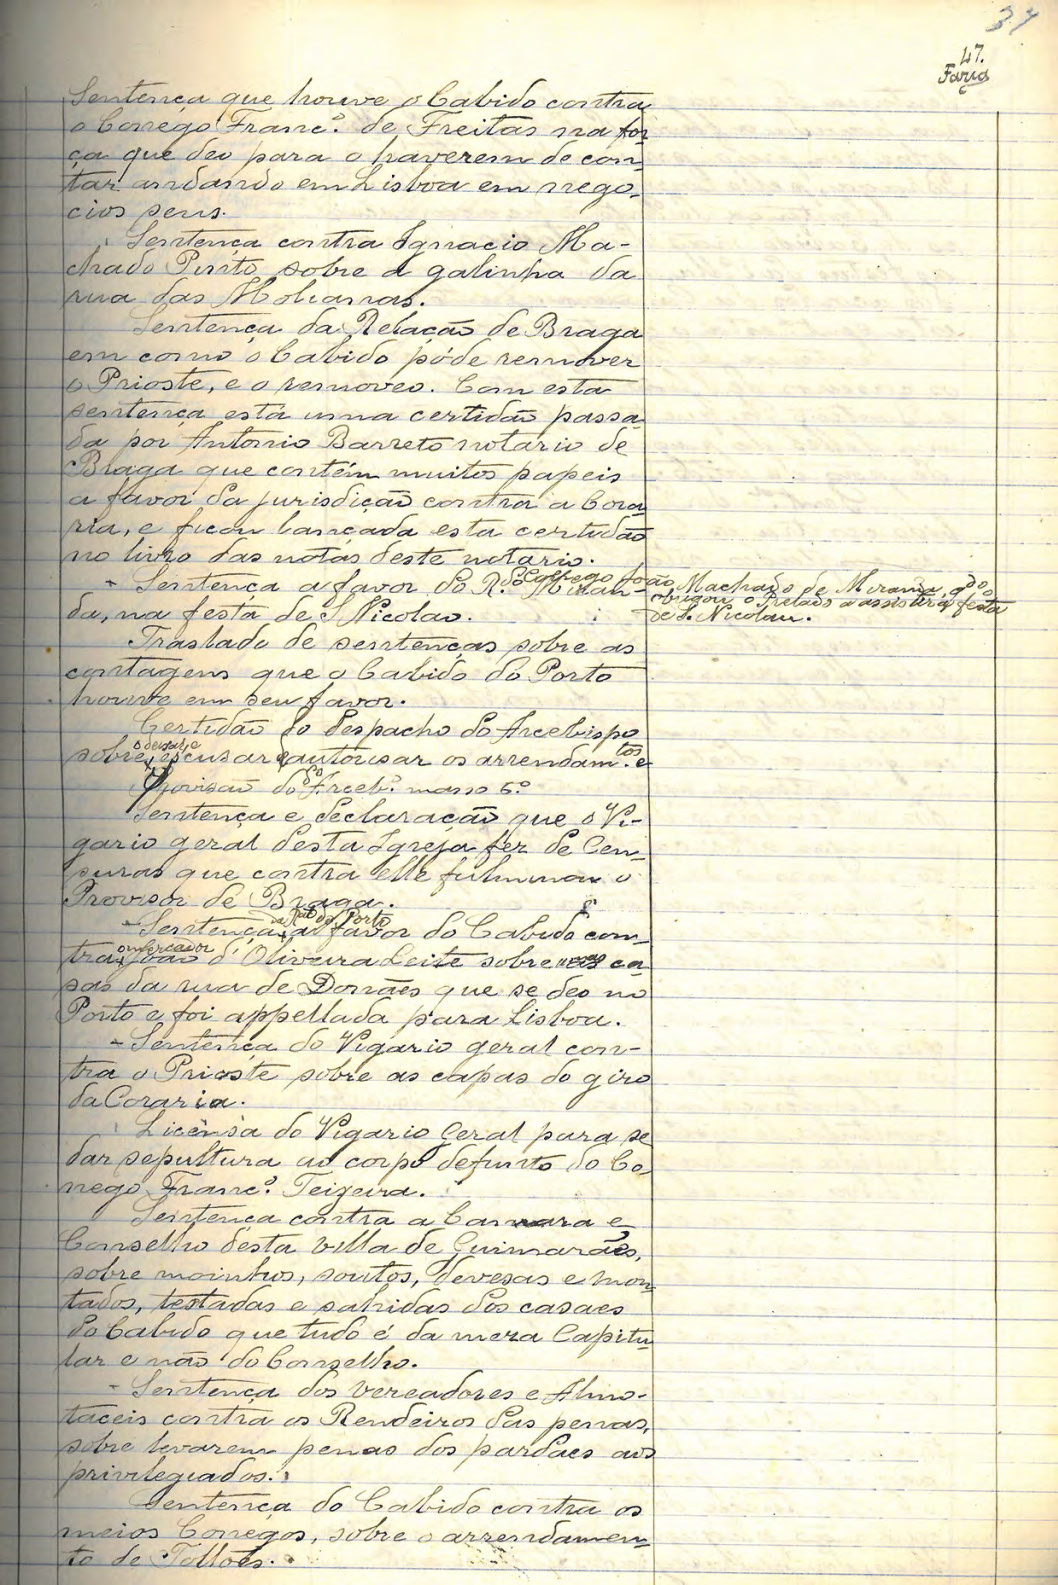 37
47.
Faria
Sentença que houve o Cabido contra
o Conego Franc.º de Freitas na for-
ça que deo para o haverem de con-
tar andando em Lisboa em nego-
cios seus.
Sentença contra Ignacio Ma-
chado Pinto sobre a galinha da
rua das Molianas.
Sentença da Relação de Braga
em como o Cabido póde remover
o Prioste, e o removeo. Com esta
sentença está uma certidão passa-
da por Antonio Barreto notario de
Braga que contém muitos papeis
a favor da jurisdição contra a Cora-
ria, e ficou lançada esta certidão
no livro das notas deste notario.
- Sentença a favor do R.do Conego João Machado de Miranda, q do
Miran- obrigou o Prelado a assistir á festa
da, na festa de S Nicolao. de S. Nicolau.
Traslado de sentenças sobre as
contagens que o Cabido do Porto
houve em seu favor.
Certidão do despacho do Arcebispo
sobre, o deixar e escusar e autorisar os arrendam.tos e
Provisão do S.or Arceb.º masso 5.º
Sentença e declaração que o Vi-
gario geral desta Igreja fez de Cen-
suras que contra elle fulminou o
Provisor de Braga.
- Sentença, na Rel. do Porto a favor do Cabido con-
tra, o mercador João d'Oliveira Leite sobre as ca-
sas da rua de Donães que se deo no
Porto e foi appellada para Lisboa.
- Sentença do Vigario geral con-
tra o Prioste sobre as capas do giro
da Coraria.
Licensa do Vigario Geral para se
dar sepultura ao corpo defunto do Co-
nego Franc.º Teixeira.
Sentença contra a Camara e
Conselho desta Villa de Guimarães,
sobre moinhos, soutos, devesas e mon-
tados, testadas e sahidas dos casaes
do Cabido que tudo é da meza Capitu-
lar e não do Conselho.
- Sentença dos vereadores e Almo-
taceis contra os Rendeiros das penas,
sobre levarem penas dos pardaes aos
privilegiados.
Sentença do Cabido contra os
meios Conegos, sobre o arrendamen-
to de Tolloes.